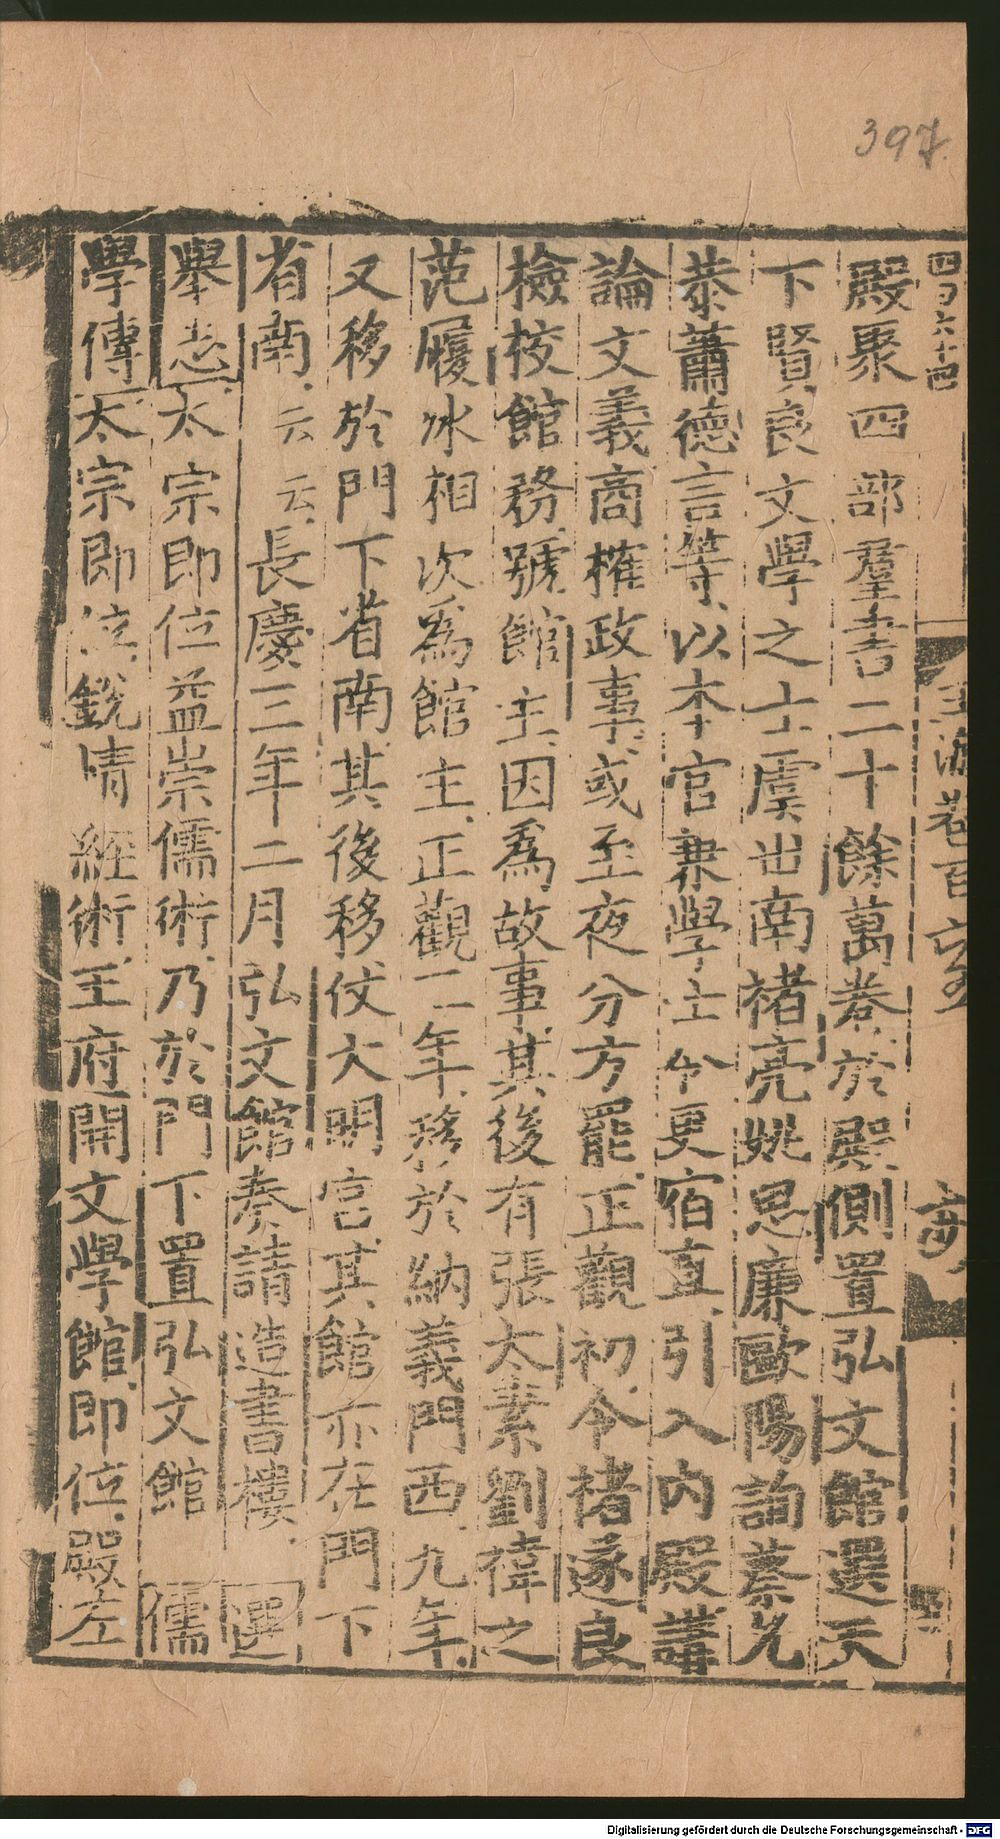 397
殿聚四部羣書二十餘萬卷於殿側置弘文館選天
下賢良文學之士虞世南褚亮姚思廉歐陽詢蔡允
恭蕭德言等以本官兼學士令更宿直引入内殿講
論文義商榷政事或至夜分方罷正觀初令褚遂良
檢校館務號館主因爲故事其後有張太素劉禕之
范履冰相次爲館主正觀二年移於納義門西九年
又移於門下省南其後移仗大明宮其館亦在門下
省南云云長慶三年二月弘文館奏請造書樓 選
舉志太宗即位益崇儒術乃於門下置弘文館 儒
學傳太宗即位銳情經術王府開文學館即位殿左
Digitalisierung gefördert durch die Deutsche Forschungsgemeinschaft - DFG